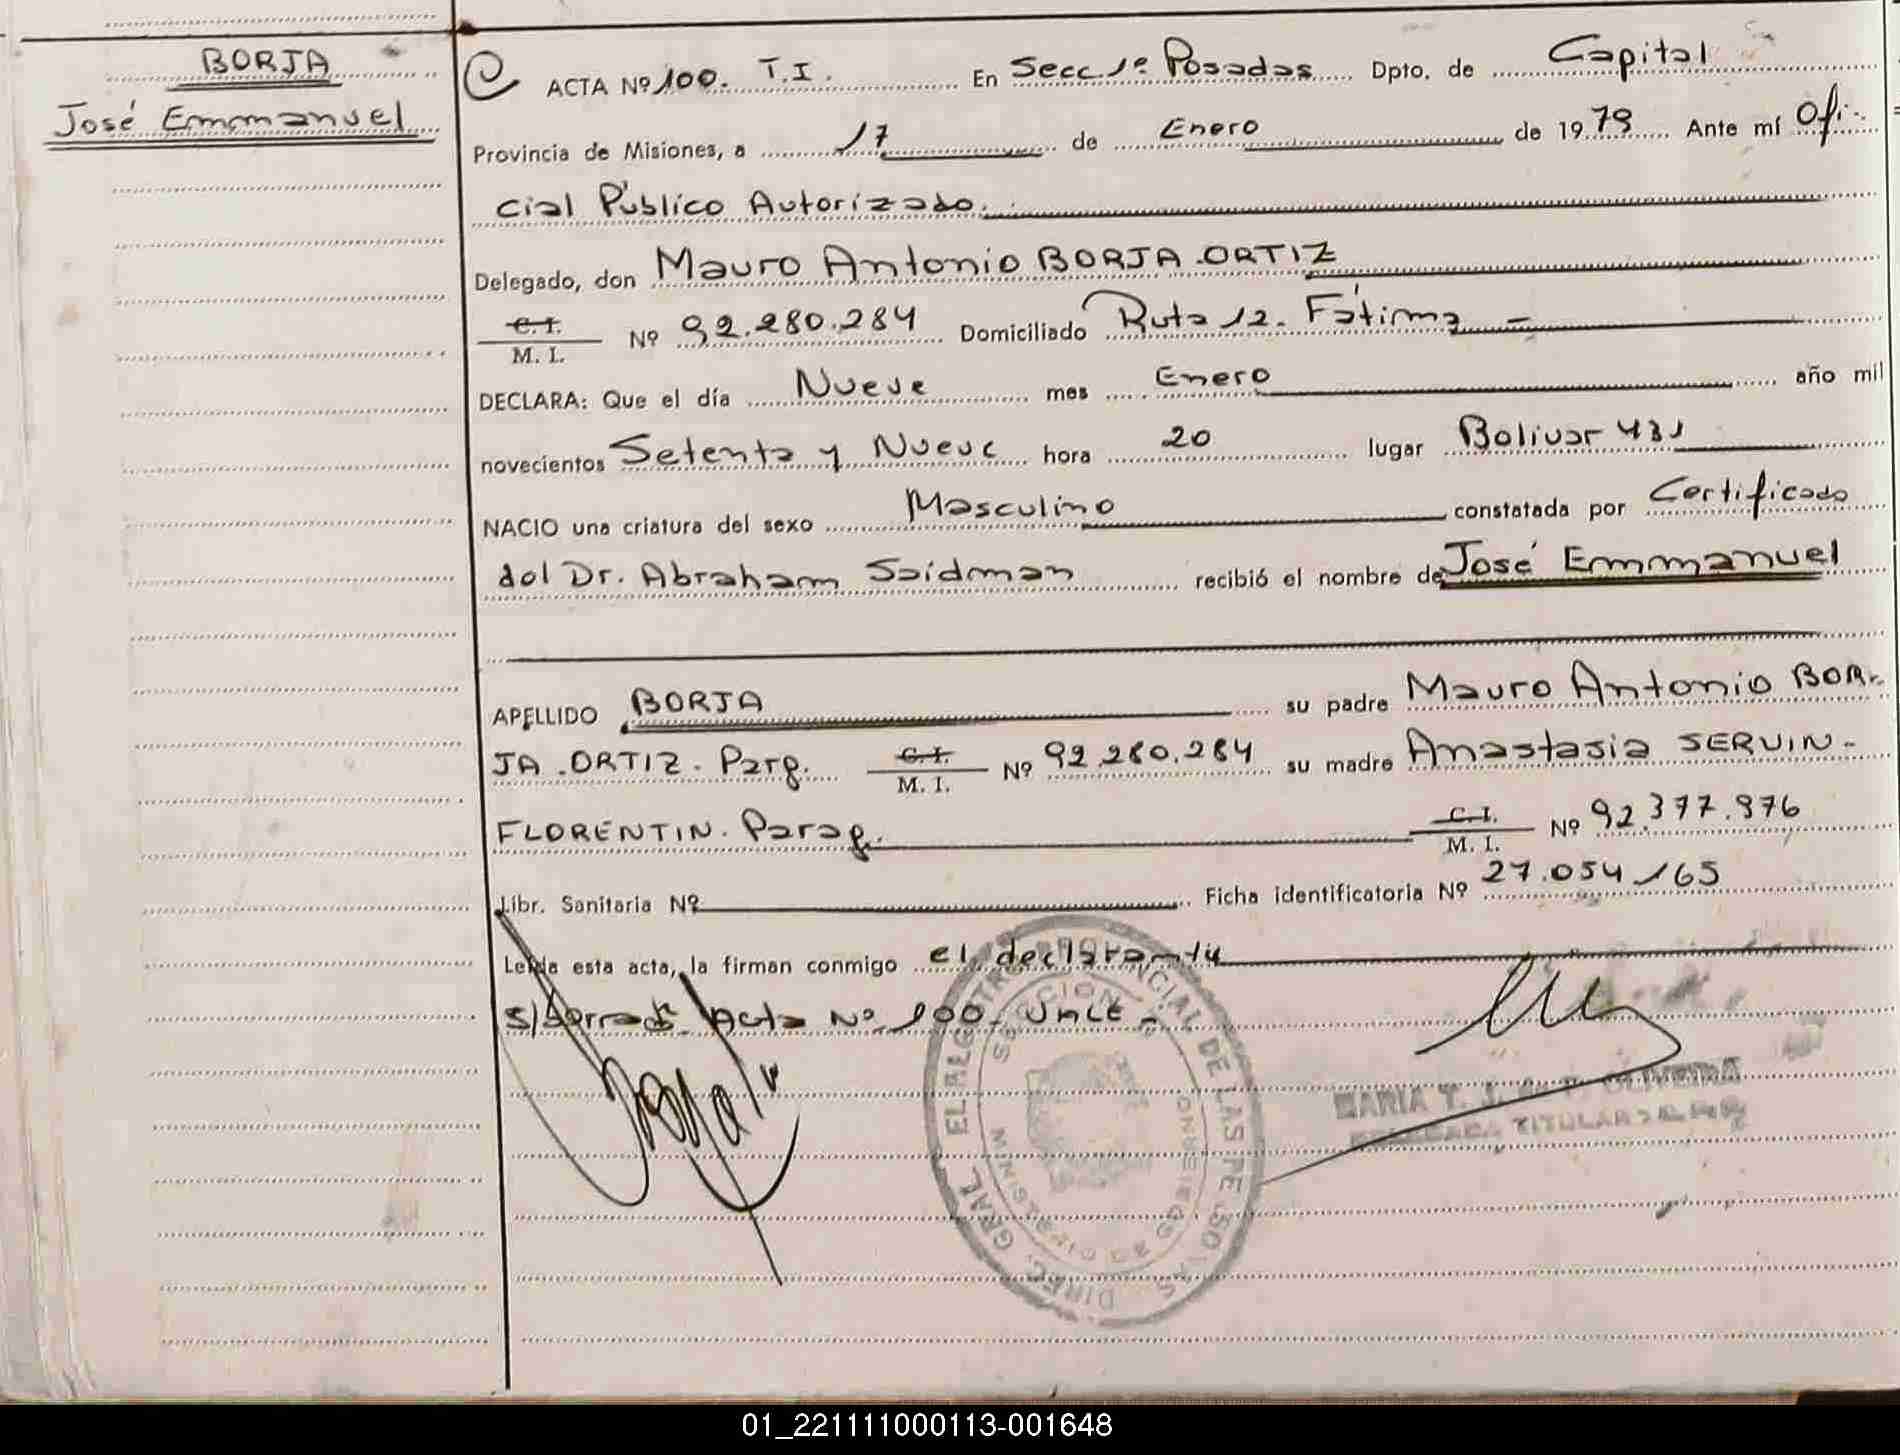 BORJA
José Emmanuel
ACTA Nº 100. T.I. En Secc 1ª Posadas Dpto. de Capital
Provincia de Misiones, a 17 de Enero de 1979 Ante mí Ofi-
cial Público Autorizado.
Delegado, don Mauro Antonio BORJA ORTIZ
C.I.
M. I. Nº 92.280.284 Domiciliado Ruta 12. Fátima -
DECLARA: Que el día Nueve mes Enero año mil
novecientos Setenta y Nueve hora 20 lugar Bolivar 431
NACIO una criatura del sexo Masculino constatada por Certificado
del Dr. Abraham Saidman recibió el nombre de José Emmanuel
APELLIDO BORJA su padre Mauro Antonio BOR-
JA ORTIZ. Parg. C.I. M. I. Nº 92.280.284 su madre Anastasia SERVIN-
FLORENTIN. Parag. C.I. M. I. Nº 92.377.976
Libr. Sanitaria Nº Ficha identificatoria Nº 27.054/65
Leída esta acta, la firman conmigo el declarante
s/borrado. Acta Nº 100. VALE -
DIREC. GRAL. DE LAS PERSONAS
MARIA T. J. OLIVEIRA
TITULAR
01_221111000113-001648